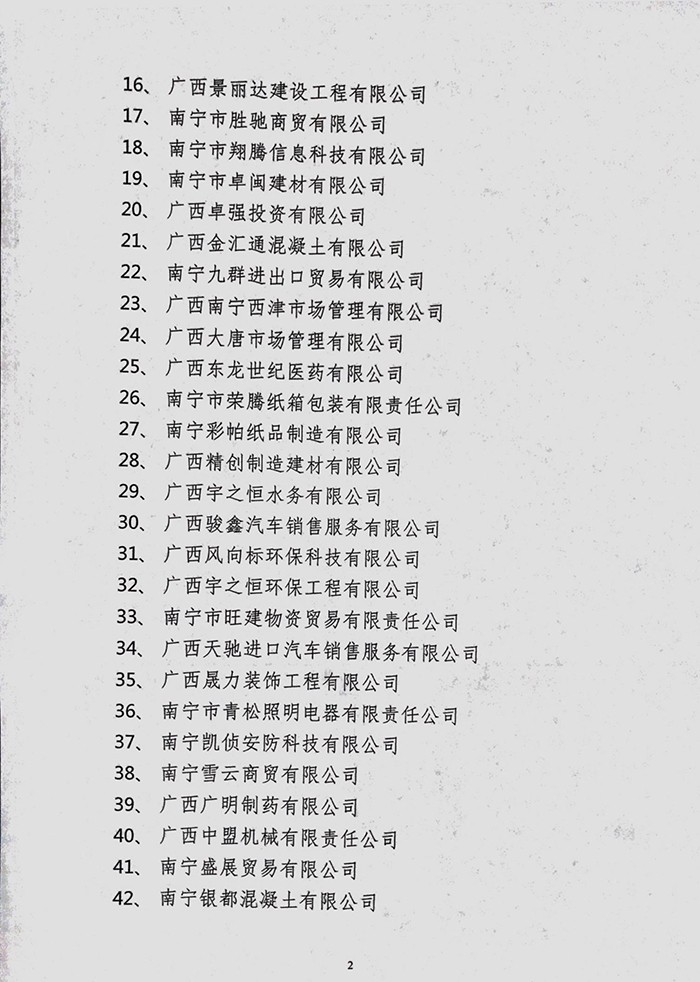 16、广西景丽达建设工程有限公司
17、南宁市胜驰商贸有限公司
18、南宁市翔腾信息科技有限公司
19、南宁市卓闽建材有限公司
20、广西卓强投资有限公司
21、广西金汇通混凝土有限公司
22、南宁九群进出口贸易有限公司
23、广西南宁西津市场管理有限公司
24、广西大唐市场管理有限公司
25、广西东龙世纪医药有限公司
26、南宁市荣腾纸箱包装有限责任公司
27、南宁彩帕纸品制造有限公司
28、广西精创制造建材有限公司
29、广西宇之恒水务有限公司
30、广西骏鑫汽车销售服务有限公司
31、广西风向标环保科技有限公司
32、广西宇之恒环保工程有限公司
33、南宁市旺建物资贸易有限责任公司
34、广西天驰进口汽车销售服务有限公司
35、广西晟力装饰工程有限公司
36、南宁市青松照明电器有限责任公司
37、南宁凯侦安防科技有限公司
38、南宁雪云商贸有限公司
39、广西广明制药有限公司
40、广西中盟机械有限责任公司
41、南宁盛展贸易有限公司
42、南宁银都混凝土有限公司
2